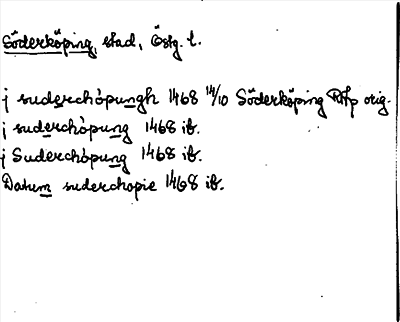 Söderköping, stad, Östg. l.
j suderchöpungh 1468 14/10 Söderköping RAp orig.
j suderchöpung 1468 ib.
j Suderchöpung 1468 ib.
Datum suderchopie 1468 ib.